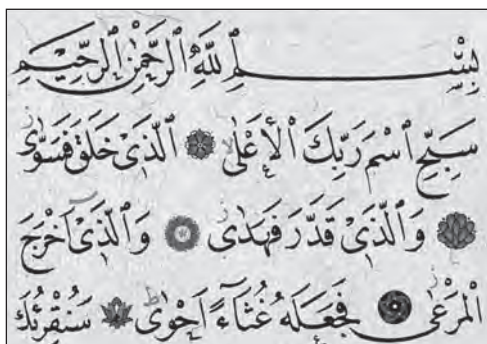 بِسْمِ اللّٰهِ الرَّحْمٰنِ الرَّحٖيمِ
سَبِّحِ اسْمَ رَبِّكَ الْاَعْلٰى ۝ اَلَّذٖى خَلَقَ فَسَوّٰى
۝ وَالَّذٖى قَدَّرَ فَهَدٰى ۝ وَالَّذٖٓى اَخْرَجَ
الْمَرْعٰى ۝ فَجَعَلَهُ غُثَٓاءً اَحْوٰى ۝ سَنُقْرِئُكَ